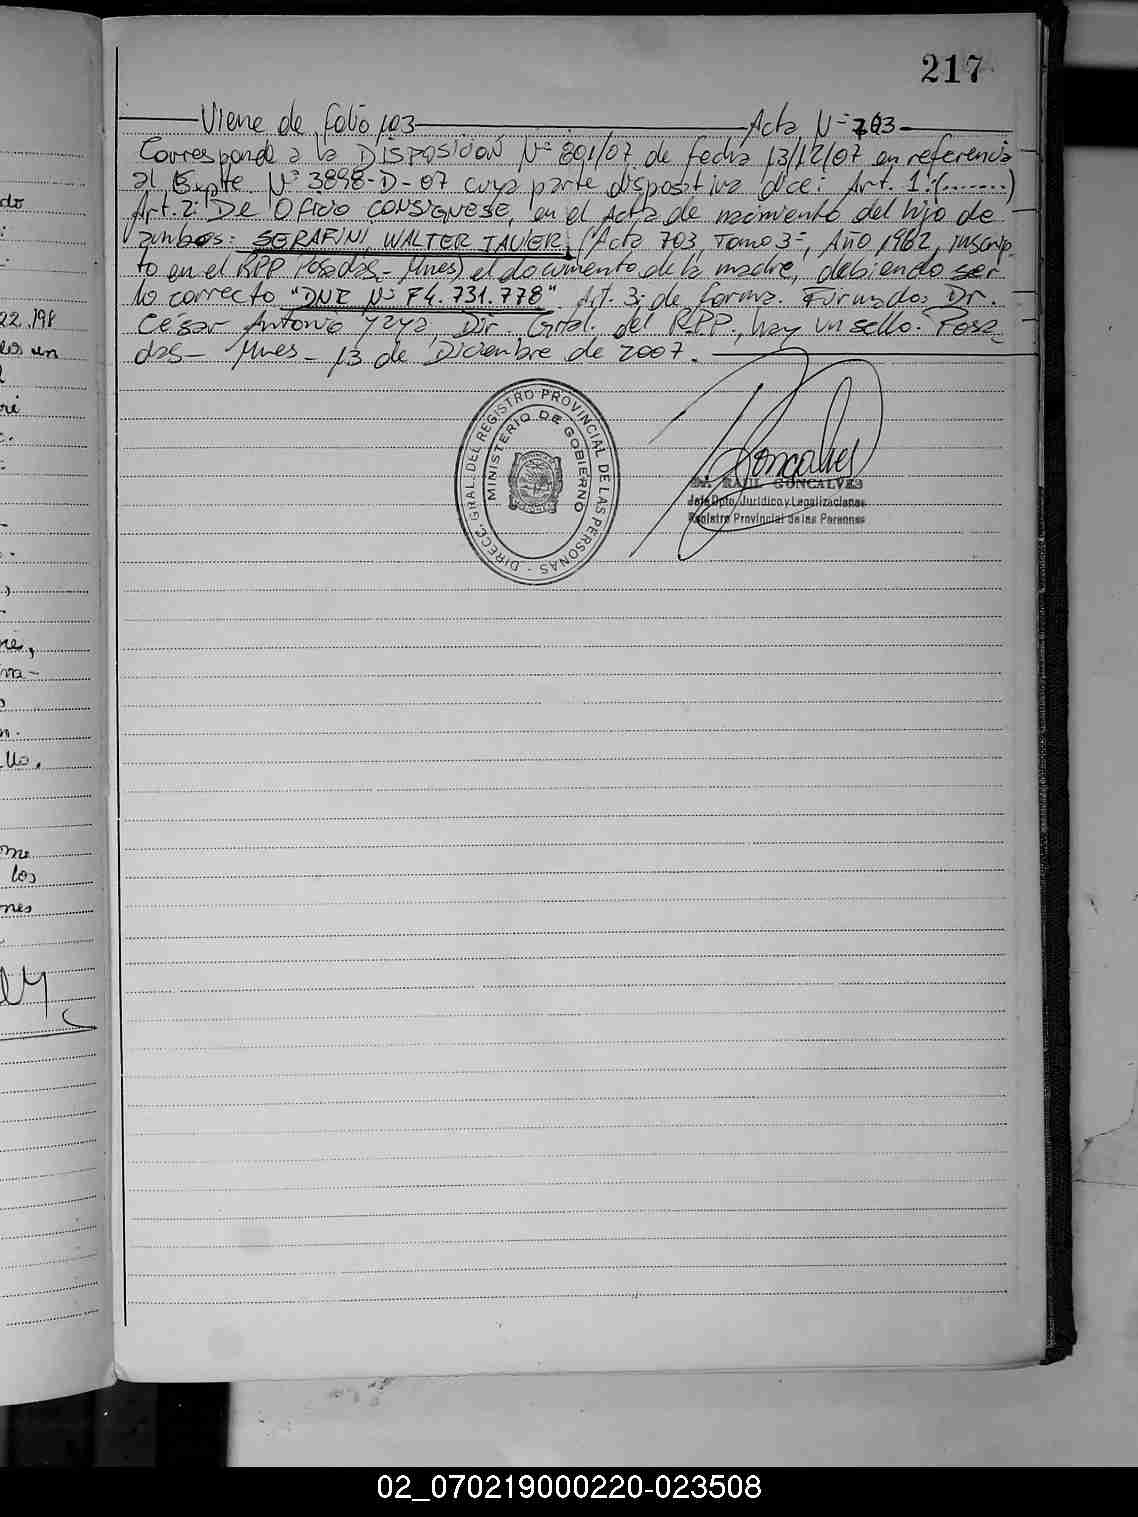 217
Viene de folio 103 Acta Nº 703
Corresponde a la DISPOSICION Nº 891/07 de fecha 13/12/07 en referencia
al Expte Nº 3898-D-07 cuya parte dispositiva dice: Art. 1:(.......)
Art. 2: De Oficio CONSIGNESE, en el Acta de nacimiento del hijo de
ambos: SERAFINI, WALTER JAVIER, (Acta 703, Tomo 3º, Año 1962, inscrip-
to en el RPP Posadas - Mnes) el documento de la madre, debiendo ser
lo correcto "DNI Nº F4.731.778". Art. 3: de forma. Firmado: Dr.
César Antonio Yaya, Dir. Gral. del RPP, hay un sello. Posa
das - Mnes - 13 de Diciembre de 2007.
DIRECC. GRAL. DEL REGISTRO PROVINCIAL DE LAS PERSONAS -
MINISTERIO DE GOBIERNO
Goncalves
Dr. RAUL GONCALVES
Jefe Dpto. Jurídico y Legalizaciones
Registro Provincial de las Personas
do
22.198
los un
ré
né,
llo.
los
nes
02_070219000220-023508